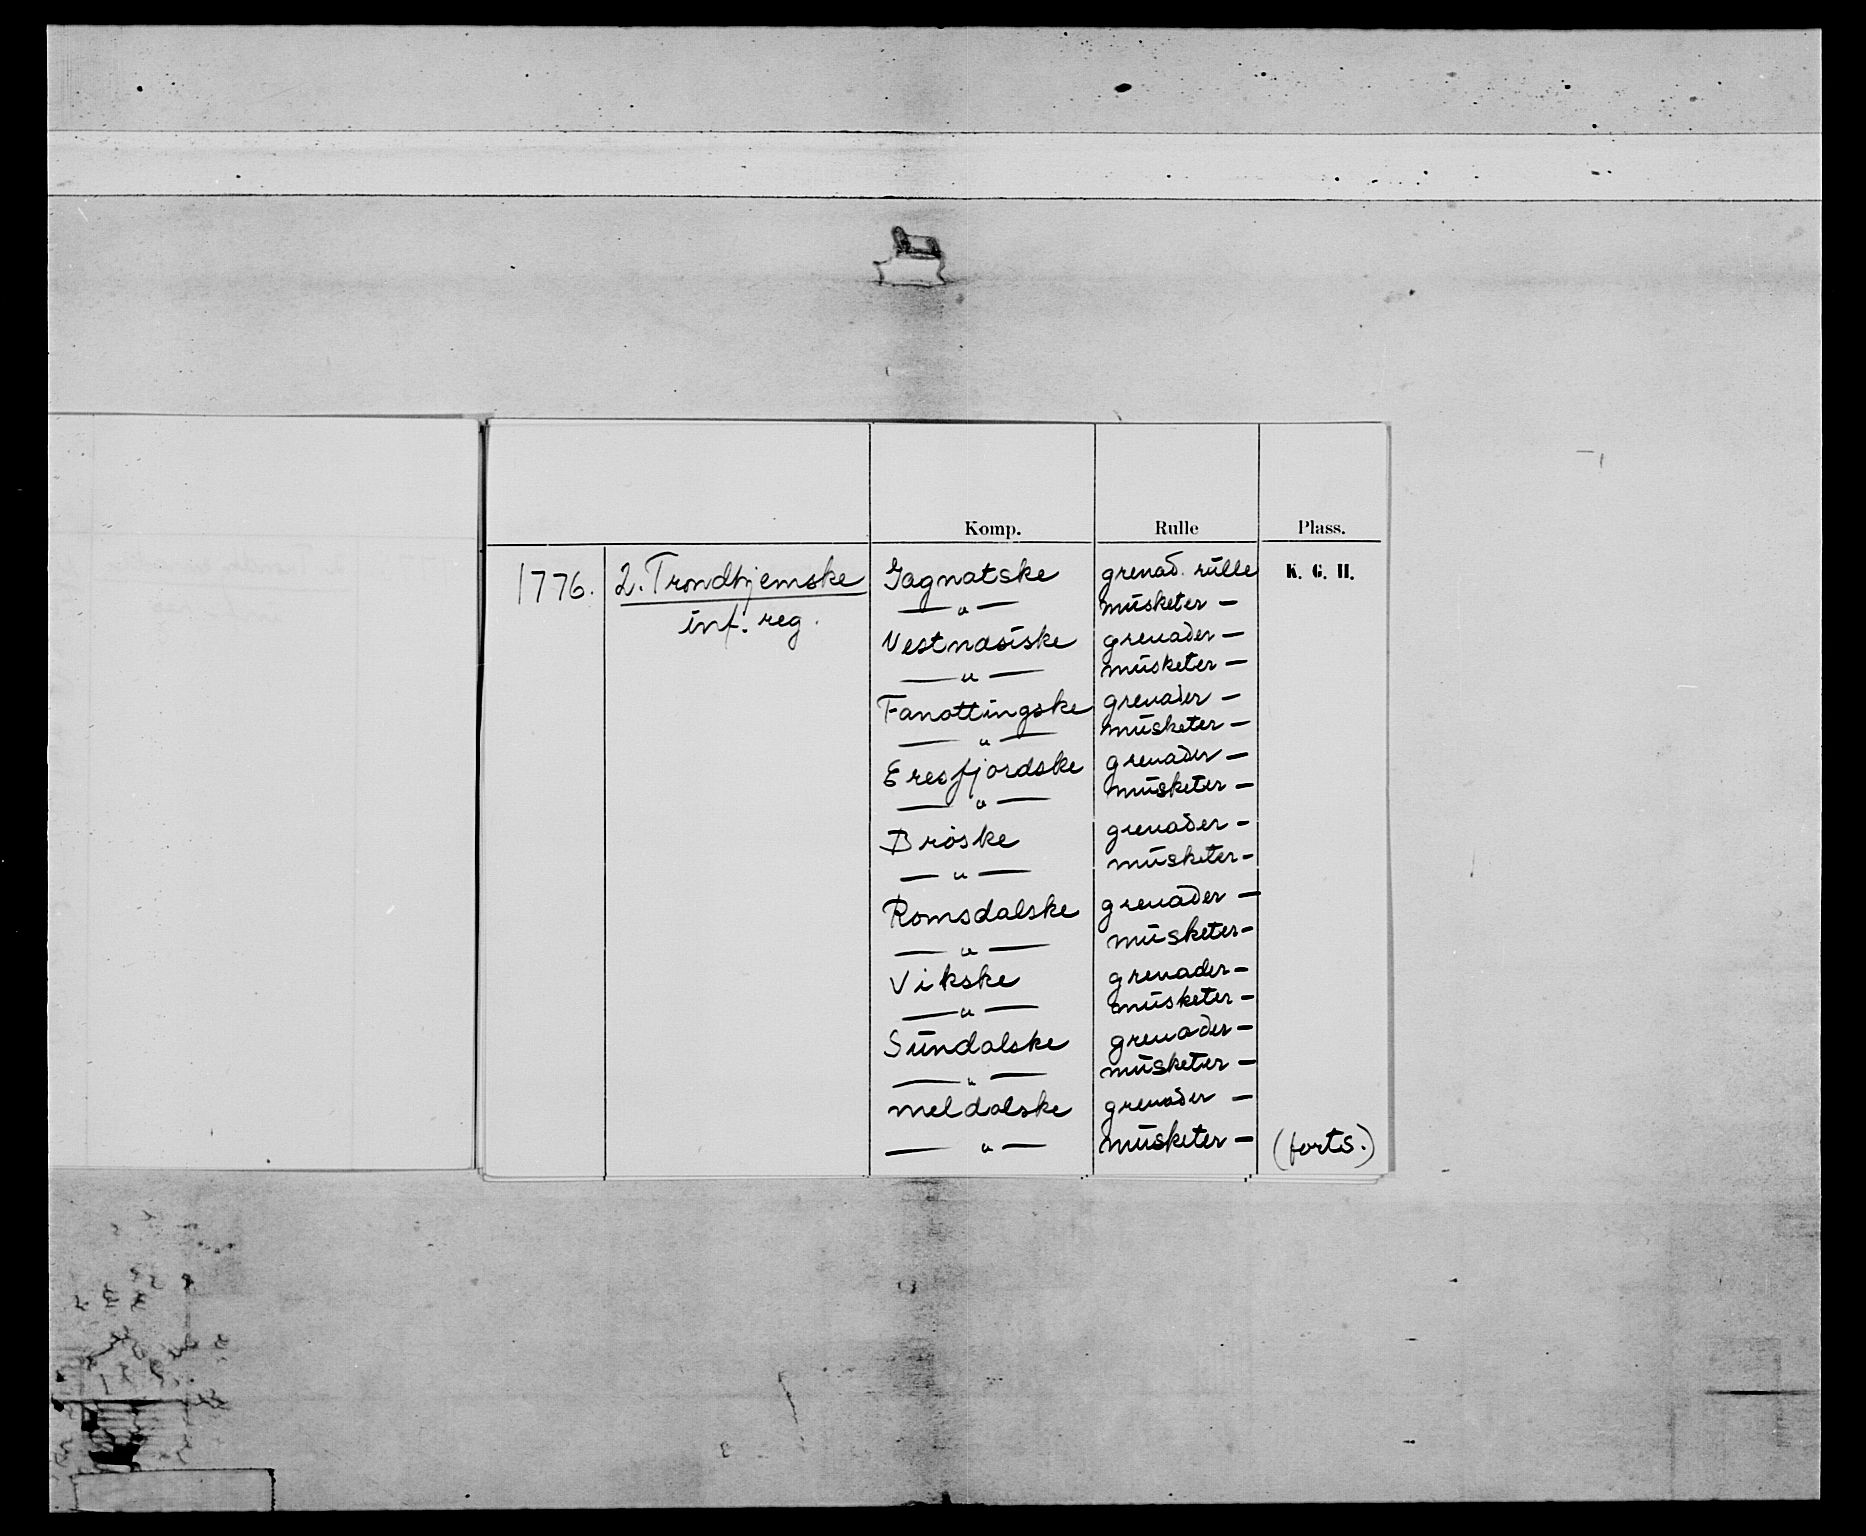 Komp. Rulle Plass.
1776. 2. Trondhjemske Gagnatske grenad. rulle K. G. H.
inf. reg. — " — musketer —
Vestnasiske grenader —
— " — musketer —
Fanottingske grenader —
— " — musketer —
Eresfjordske grenader —
— " — musketer —
Brøske grenader —
— " — musketer —
Romsdalske grenader —
— " — musketer —
Vikske grenader —
— " — musketer —
Sundalske grenader —
— " — musketer —
Meldalske grenader —
— " — musketer — (forts.)